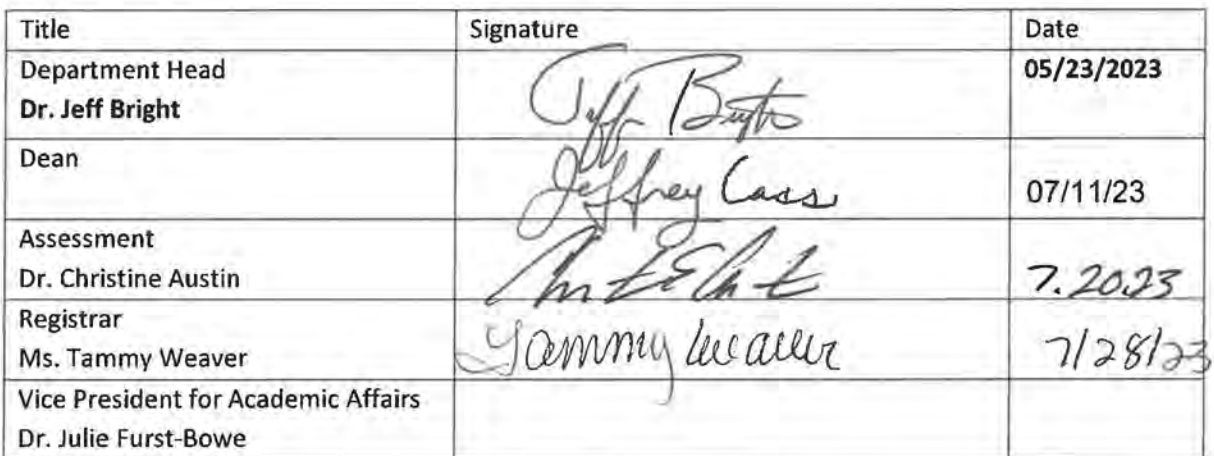 Title Signature Date
Department Head 05/23/2023
Dr. Jeff Bright Jeff
Dean Jeffrey Cass 07/11/23
Assessment
Dr. Christine Austin 7.20.23
Registrar
Ms. Tammy Weaver Tammy Weaver 7/28/23
Vice President for Academic Affairs
Dr. Julie Furst-Bowe